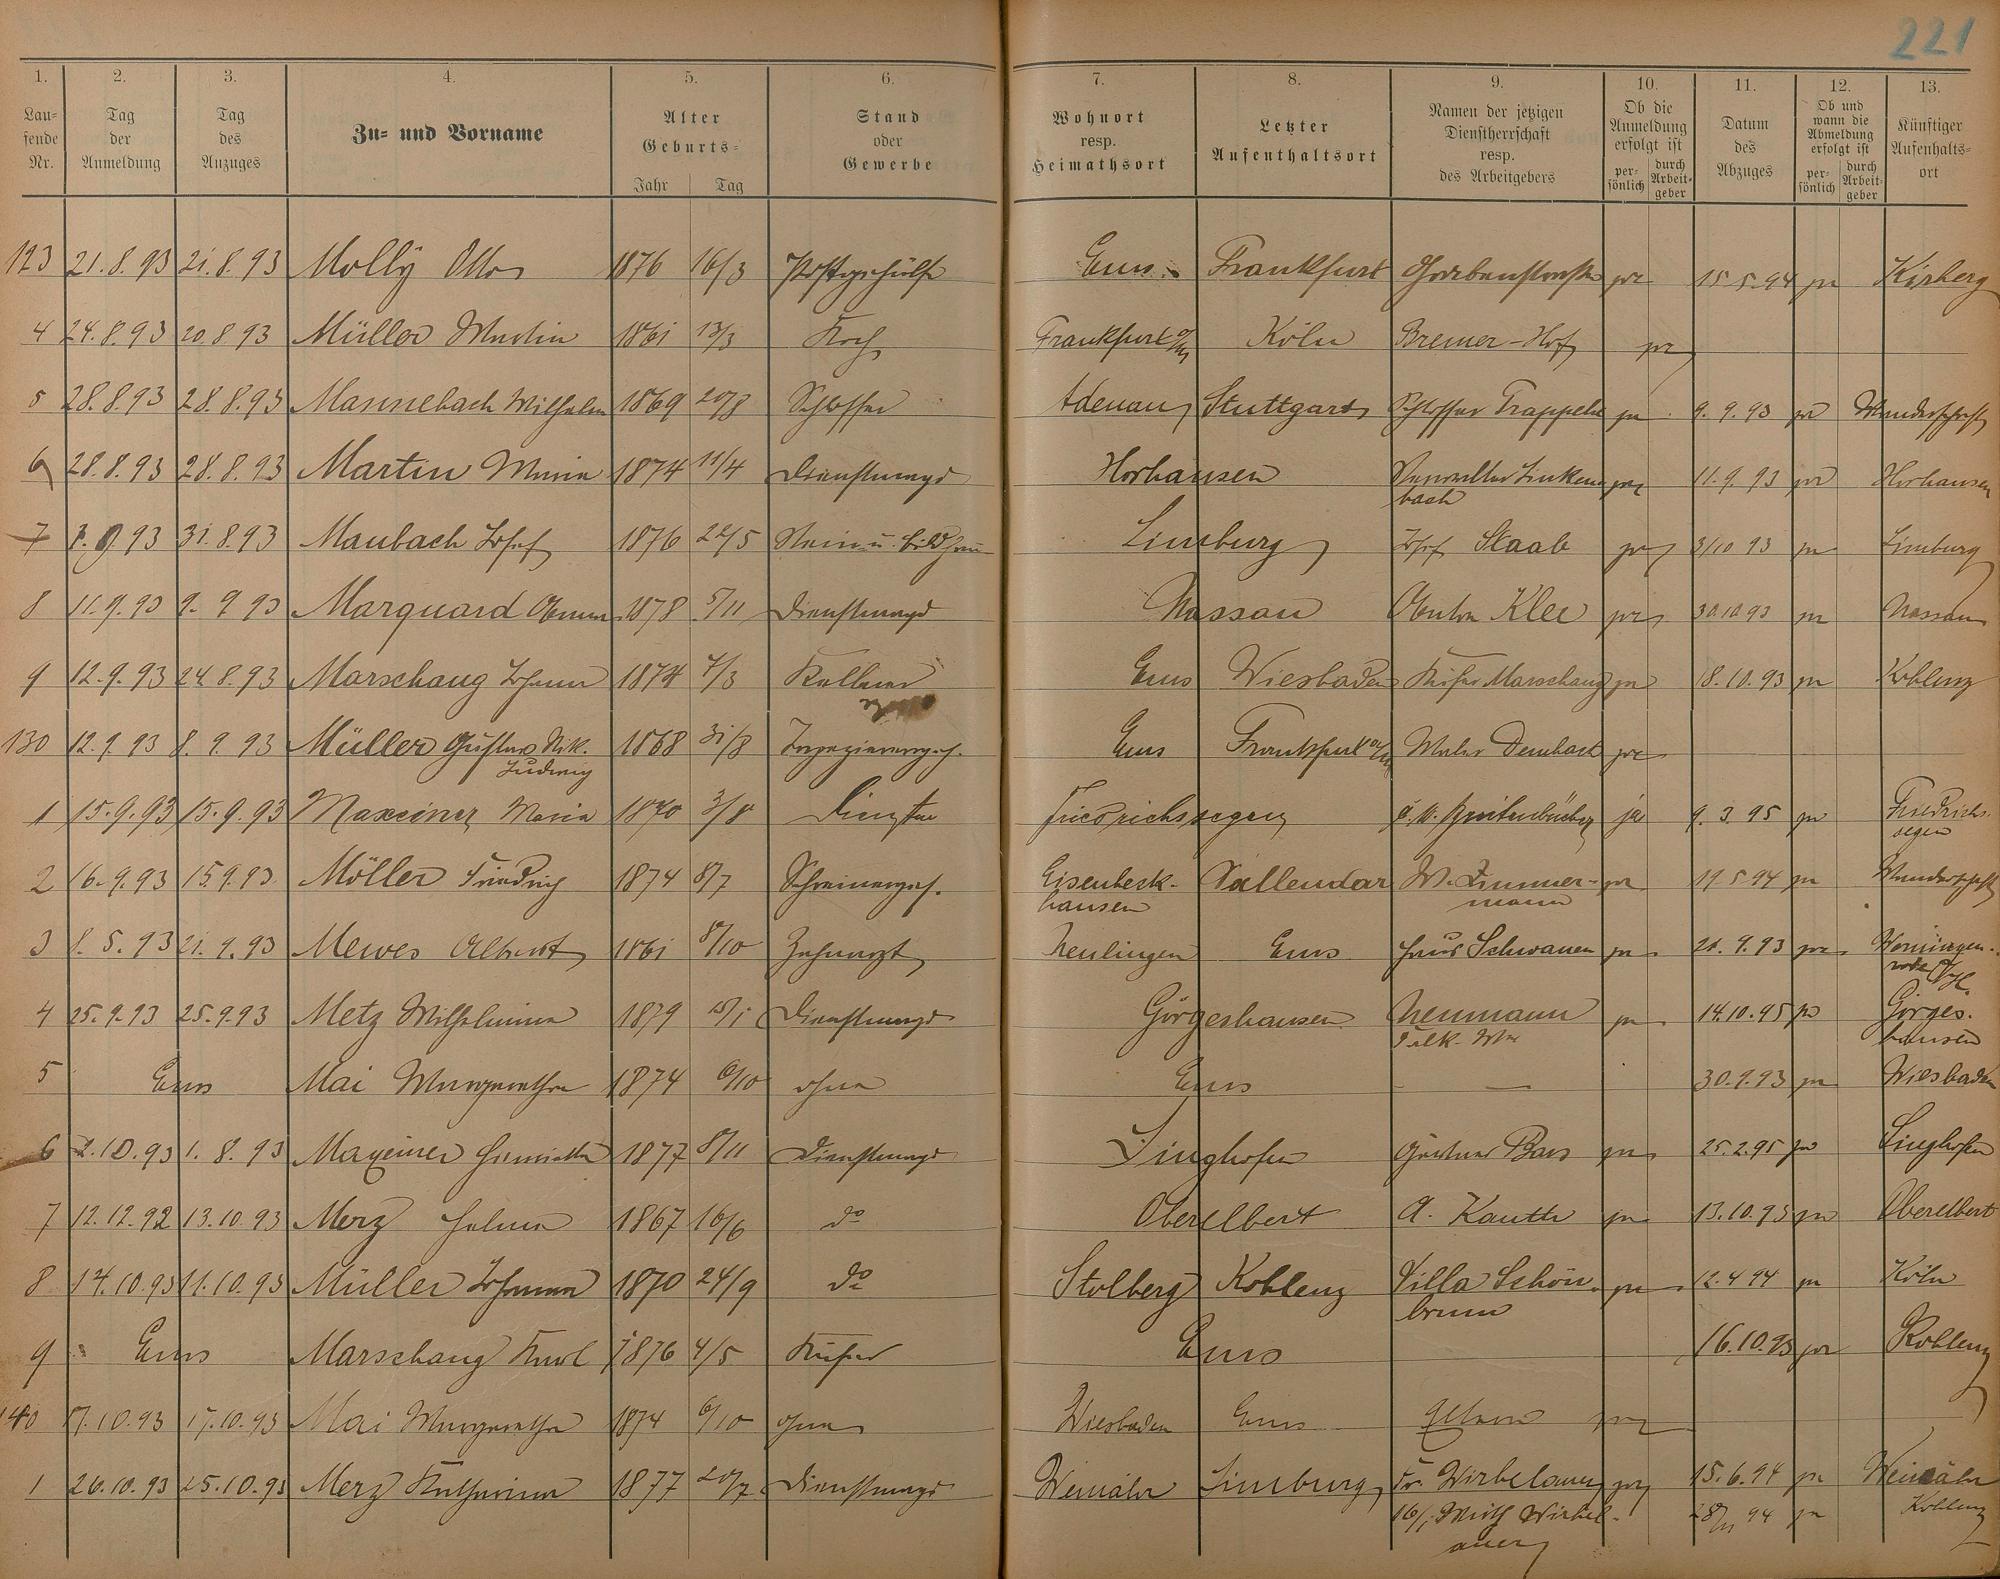 221
1. 2. 3. 4. 5. 6. 7. 8. 9. 10. 11. 12. 13.
Laufende Nr. Tag der Anmeldung Tag des Anzuges Zu- und Vorname Alter Geburts- Jahr Tag Stand oder Gewerbe Wohnort resp. Heimathsort Letzter Aufenthaltsort Namen der jetzigen Dienstherrschaft resp. des Arbeitgebers Ob die Anmeldung erfolgt ist persönlich durch Arbeitgeber Datum des Abzuges Ob und wann die Abmeldung erfolgt ist persönlich durch Arbeitgeber Künftiger Aufenthaltsort
123 21.8.93 21.8.93 Molly Otto 1876 16/3 Postgehülfe Ems Frankfurt Grabenstraße 15.5.94 Kirberg
4 24.8.93 20.8.93 Müller Martin 1861 13/3 Koch Frankfurt a/M Köln Bremer-Hof
5 28.8.93 28.8.93 Mannebach Wilhelm 1869 20/8 Schlosser Adenau Stuttgart Schlosser Trappeler 9.9.93 Wanderschaft
6 28.8.93 28.8.93 Martin Maria 1874 11/4 Dienstmagd Horhausen Verwalter Linken 11.9.93 Horhausen
bach
7 31.8.93 Maubach Josef 1876 22/5 Stein u. Bildhau Limburg Josef Staab 3/10 93 Limburg
8 11.9.93 9.9.93 Marquard Anna 1878 5/11 Dienstmagd Nassau Anton Klee 30.10.93 Nassau
9 12.9.93 24.8.93 Marschang Johann 1874 7/3 Kellner Ems Wiesbaden Küfer Marschang 18.10.93 Koblenz
130 12.9.93 8.9.93 Müller Gustav Nik. 1868 31/8 Tapezierergeh. Ems Frankfurt a/M Maler Dembach
Ludwig
1 15.9.93 15.9.93 Maxeiner Maria 1870 3/8 Friedrichssegen ja 9.3.95 Friedrichs
segen
2 16.9.93 15.9.93 Möller Friedrich 1874 8/7 Schreinergeh. Eisenberk- Vallendar W. Zimmer- 19.5.94 Wanderschaft
hausen mann
3 8.5.93 21.9.93 Mewes Albert 1861 8/10 Zahnarzt Neulingen Ems Haus Schwanen 21.9.93
4 25.9.93 25.9.93 Metz Wilhelmina 1879 Dienstmagd Görgeshausen Neumann 14.10.95 Görges-
hausen
5 Ems Mai Margaretha 1874 6/10 ohne Ems — 30.9.93 Wiesbaden
6 2.10.93 1.8.93 Maxeiner Henriette 1877 8/11 Dienstmagd Singhofen Gärtner Bars 25.2.95 Singhofen
7 12.12.92 13.10.93 Merz Helene 1867 16/6 do Oberelbert A. Kauth 13.10.93 Oberelbert
8 14.10.93 11.10.93 Müller Johanna 1870 24/9 do Stolberg Koblenz Villa Schön- 12.4.94 Köln
brunn
9 Ems Marschang Karl 1876 4/5 Küfer Ems 16.10.93 Koblenz
140 17.10.93 17.10.93 Mai Margaretha 1874 6/10 ohne Wiesbaden Ems Eltern
1 26.10.93 25.10.93 Merz Katharina 1877 20/7 Dienstmagd Weinähr Limburg Fr. Wirbelauer 15.6.94 Weinähr
Wirbel- 94 Koblenz
auer